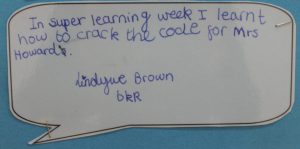 In super learning week I learnt
how to crack the code for Mrs
Howards.
Brown